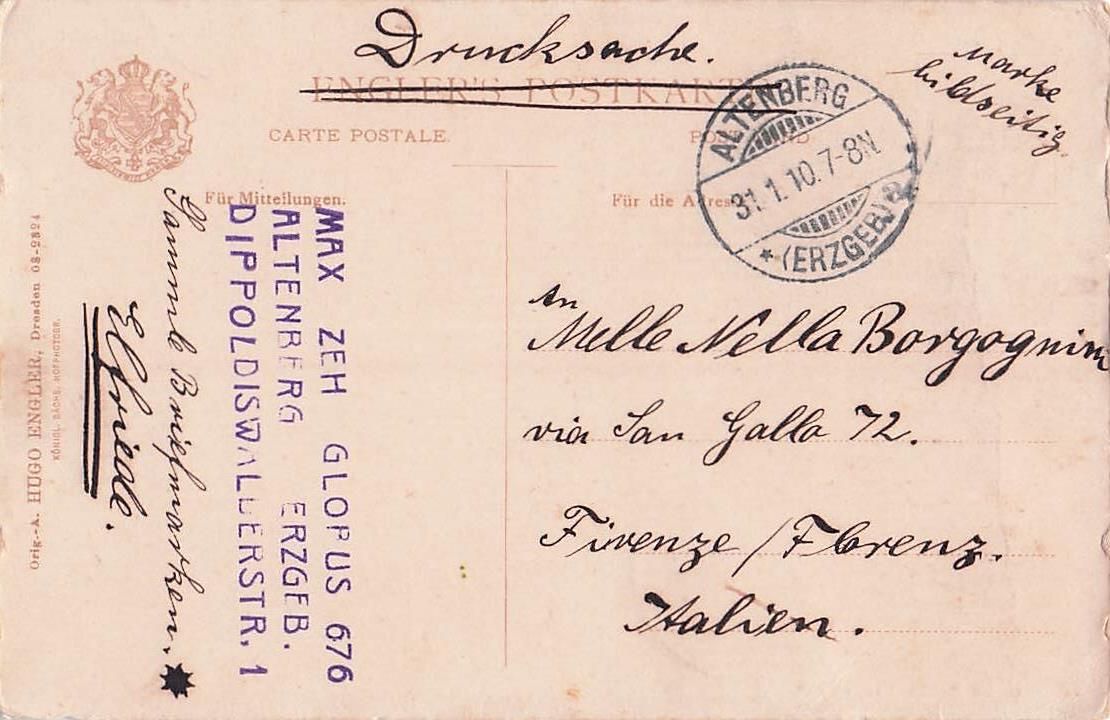 Drucksache.
ENGLER'S POSTKARTE
Marke
bildseitig.
CARTE POSTALE.
ALTENBERG
31.1.10.7-8N
* (ERZGEB.)
Für Mitteilungen.
Für die Adresse
MAX ZEH GLOPUS 676
ALTENBERG ERZGEB.
DIPPOLDISWALLERSTR. 1
Sammle Briefmarken.
Elfriede.
Orig.-A. HUGO ENGLER, Dresden 08-2824
KÖNIGL. SÄCHS. HOFPHOTOGR.
An
Melle Nella Borgognini
via San Gallo 72.
Firenze / Florenz.
Italien.